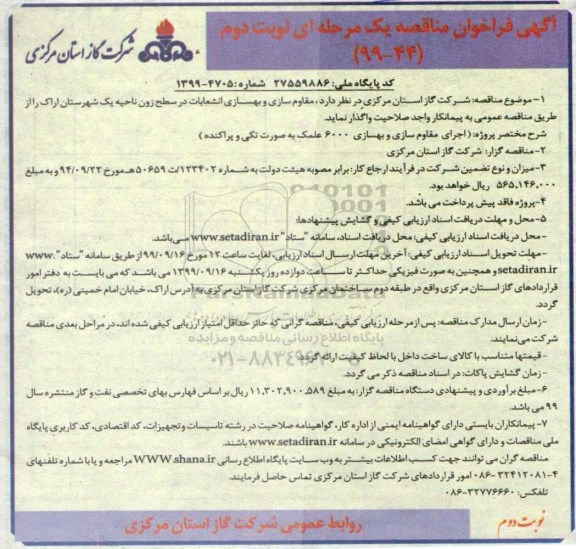 آگهی فراخوان مناقصه یک مرحله ای نوبت دوم
(۹۹-۴۴)
شرکت گاز استان مرکزی
کد پایگاه ملی: ۲۷۵۵۹۸۸۶ شماره: ۴۷۰۵-۱۳۹۹
۱- موضوع مناقصه: شرکت گاز استان مرکزی در نظر دارد، مقاوم سازی و بهسازی انشعابات در سطح زون ناحیه یک شهرستان اراک را از
طریق مناقصه عمومی به پیمانکار واجد صلاحیت واگذار نماید.
شرح مختصر پروژه: ( اجرای مقاوم سازی و بهسازی ۶۰۰۰ علمک به صورت تکی و پراکنده )
۲- مناقصه گزار: شرکت گاز استان مرکزی
۳- میزان و نوع تضمین شرکت در فرآیند ارجاع کار: برابر مصوبه هیئت دولت به شماره ۱۲۳۴۰۲/ت ۵۰۶۵۹ هـ مورخ ۹۴/۰۹/۲۲ و به مبلغ
۵۶۵,۱۴۶,۰۰۰ ریال خواهد بود.
۴- پروژه فاقد پیش پرداخت می باشد.
۵- محل و مهلت دریافت اسناد ارزیابی کیفی و گشایش پیشنهادها:
- محل دریافت اسناد ارزیابی کیفی: محل دریافت اسناد، سامانه "ستاد" www.setadiran.ir می باشد.
- مهلت تحویل اسناد ارزیابی کیفی: آخرین مهلت ارسال اسناد ارزیابی، لغایت ساعت ۱۲ مورخ ۹۹/۰۹/۱۶ از طریق سامانه "ستاد": www.
setadiran.ir و همچنین به صورت فیزیکی حداکثر تا ساعت دوازده روز یکشنبه ۱۳۹۹/۰۹/۱۶ می باشد که می بایست به دفتر امور
قراردادهای گاز استان مرکزی واقع در طبقه دوم ساختمان مرکزی شرکت گاز استان مرکزی به آدرس اراک، خیابان امام خمینی (ره)، تحویل
گردد.
- زمان ارسال مدارک مناقصه: پس از مرحله ارزیابی کیفی، مناقصه گرانی که حائز حداقل امتیاز ارزیابی کیفی شده اند، در مراحل بعدی مناقصه
شرکت می نمایند.
- قیمتها متناسب با کالای ساخت داخل با لحاظ کیفیت ارائه گردد.
- زمان گشایش پاکات: در اسناد مناقصه ذکر می گردد.
۶- مبلغ برآوردی و پیشنهادی دستگاه مناقصه گزار: به مبلغ ۱۱,۳۰۲,۹۰۰,۵۸۹ ریال بر اساس فهارس بهای تخصصی نفت و گاز منتشره سال
۹۹ می باشد.
۷- پیمانکاران بایستی دارای گواهینامه ایمنی از اداره کار، گواهینامه صلاحیت در رشته تاسیسات و تجهیزات، کد اقتصادی، کد کاربری پایگاه
ملی مناقصات و دارای گواهی امضای الکترونیکی در سامانه www.setadiran.ir باشند.
مناقصه گران می توانند جهت کسب اطلاعات بیشتر به وب سایت پایگاه اطلاع رسانی WWW.shana.ir مراجعه و یا با شماره تلفنهای
۰۸۶-۳۲۴۱۲۰۸۱-۴ امور قراردادهای شرکت گاز استان مرکزی تماس حاصل فرمایند.
تلفکس: ۰۸۶-۳۲۷۷۶۶۶۰
نوبت دوم
روابط عمومی شرکت گاز استان مرکزی
پایگاه اطلاع رسانی مناقصه و مزایده